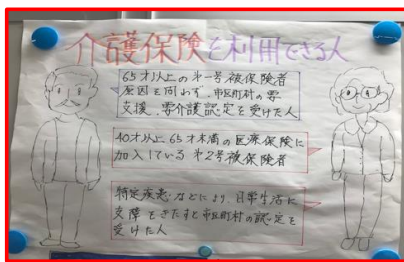 介護保険を利用できる人
65才以上の第一号被保険者
原因を問わず、市区町村の要
支援、要介護認定を受けた人
40才以上65才未満の医療保険に
加入している第2号被保険者
特定疾患などにより日常生活に
支障をきたすと市区町村の認定を
受けた人